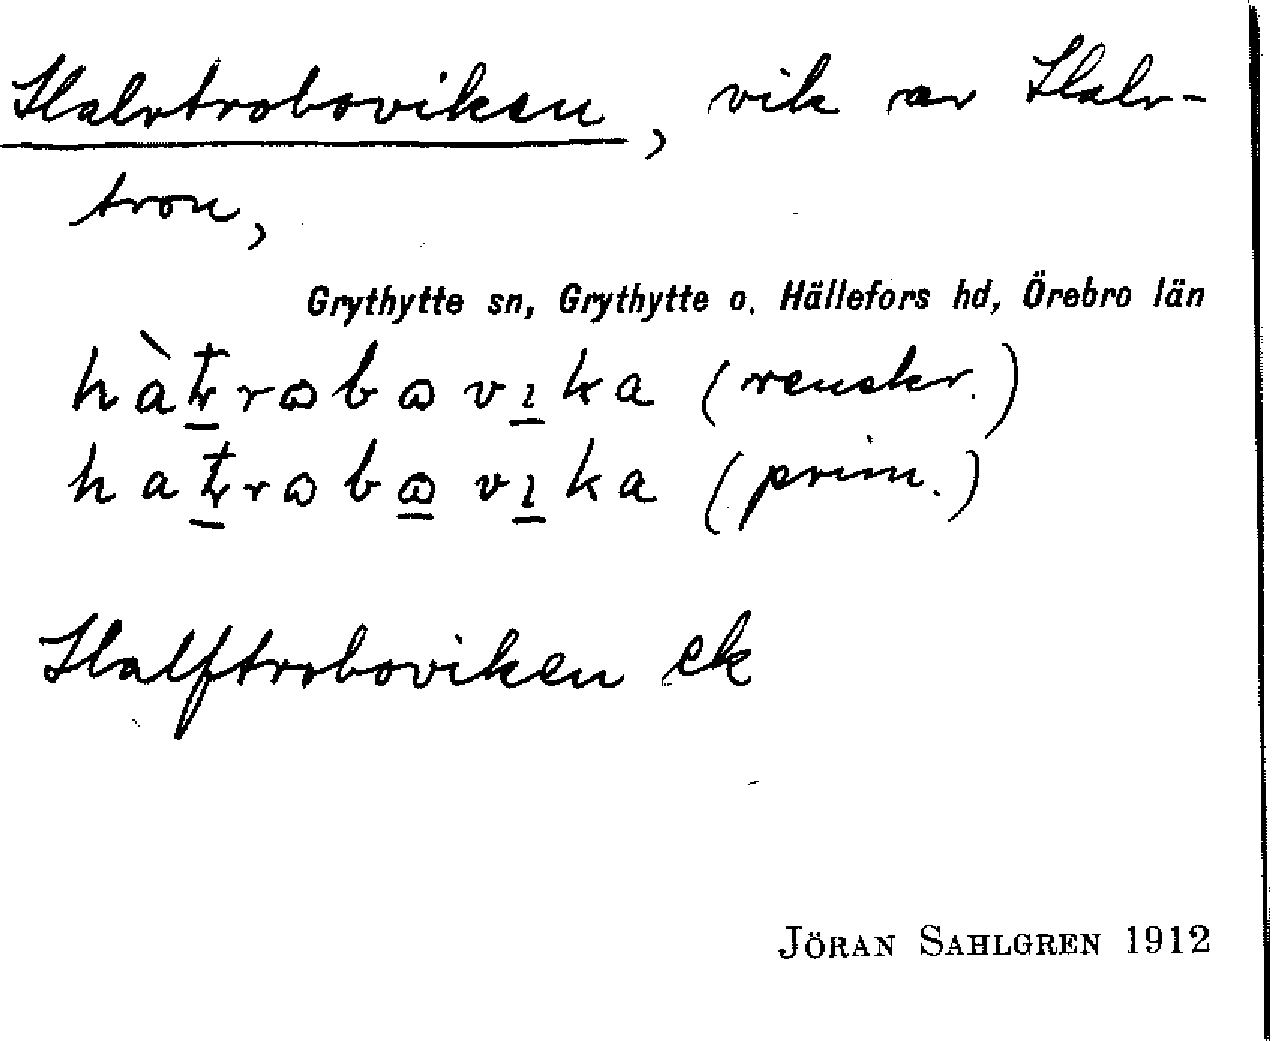 Halvtroboviken, vik av Halv-
tron,
Grythytte sn, Grythytte o. Hällefors hd, Örebro län
(renskr.)
(prim.)
Halftroboviken ek
JÖRAN SAHLGREN 1912